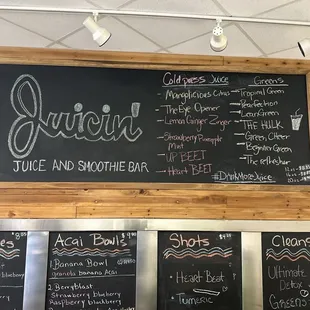 Juicin'
JUICE AND SMOOTHIE BAR
Cold press Juice
- Mangolicious Citrus
- The Eye Opener
- Lemon Ginger Zinger
- Strawberry Pineapple
Mint
- UP BEET
- Heart BEET
Greens
- Tropical Green
- Pearfection
- Lean Green
- THE HULK
- Green, Cheer
- Beginner Green
- The refresher
#DRINKMOREJUICE
Acai Bowls
1. Banana Bowl
granola banana Acai
2. Berryblast
Strawberry blueberry
Raspberry blackberry
Shots
- Heart Beat
- Turmeric
Cleans
Ultimate
Detox
Greens